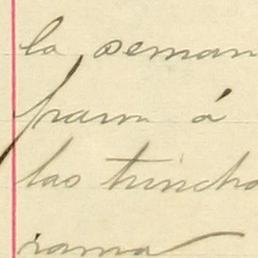 la seman
para á
las trinche
rama